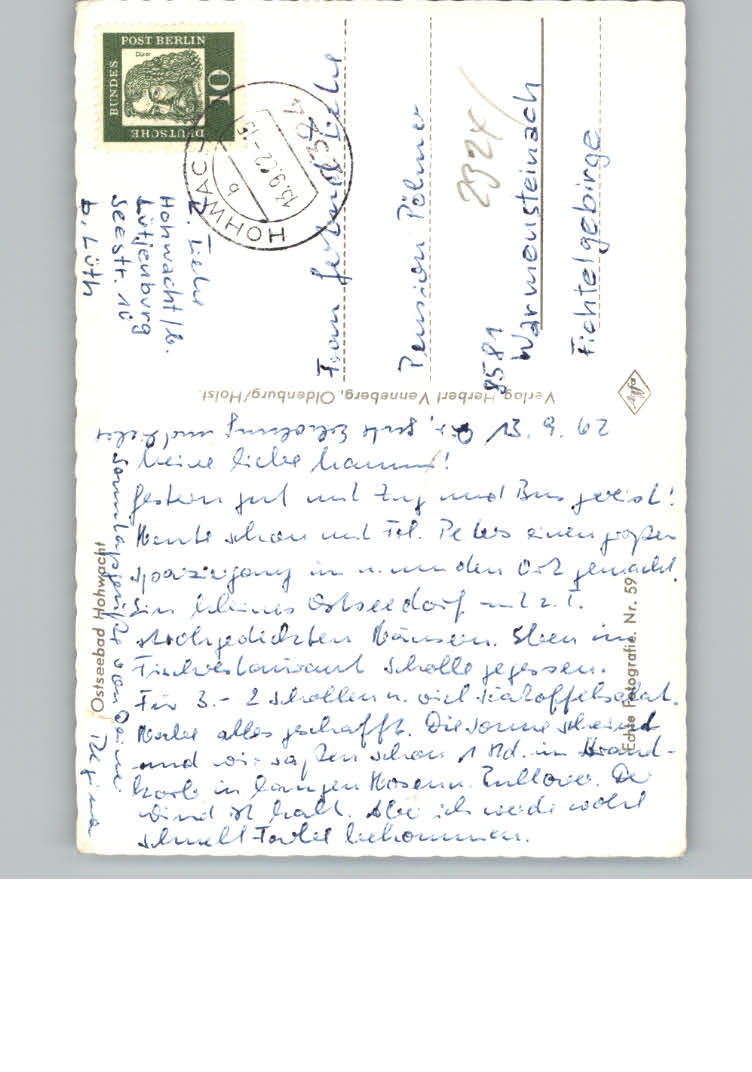 DEUTSCHE BUNDESPOST BERLIN
Dürer
10
HOHWACHT
b
13.9.62-15
2324
R. Liehr
Hohwacht/b.
Lütjenburg
Seestr. 10
b. Lüth
Frau
Pension
2324/
8581
Warmensteinach
Fichtelgebirge
Verlag Herbert Venneberg, Oldenburg/Holst.
Agfa
Ostseebad Hohwacht
Echte Fotografie. Nr. 59
13. 9. 62
Meine liebe Mammi!
Gestern gut mit Zug und Bus gereist!
Heute schon mit Frl. Peters einen großen
Spaziergang in u. um den Ort gemacht.
Ein kleines Ostseedorf mit z. T.
strohgedeckten Häusern. Eben im
Fischrestaurant Scholle gegessen.
Für 3.- 2 Schollen u. viel Kartoffelsalat.
Habe alles geschafft. Die Sonne scheint
und wir saßen schon 1 Std. im Strand-
korb in langen Hosen u. Pullover. Der
Wind ist kalt. Aber ich werde wohl
schnell Farbe bekommen.
gute Erholung und liebe
Sonntagsgrüße von Deiner
Regina